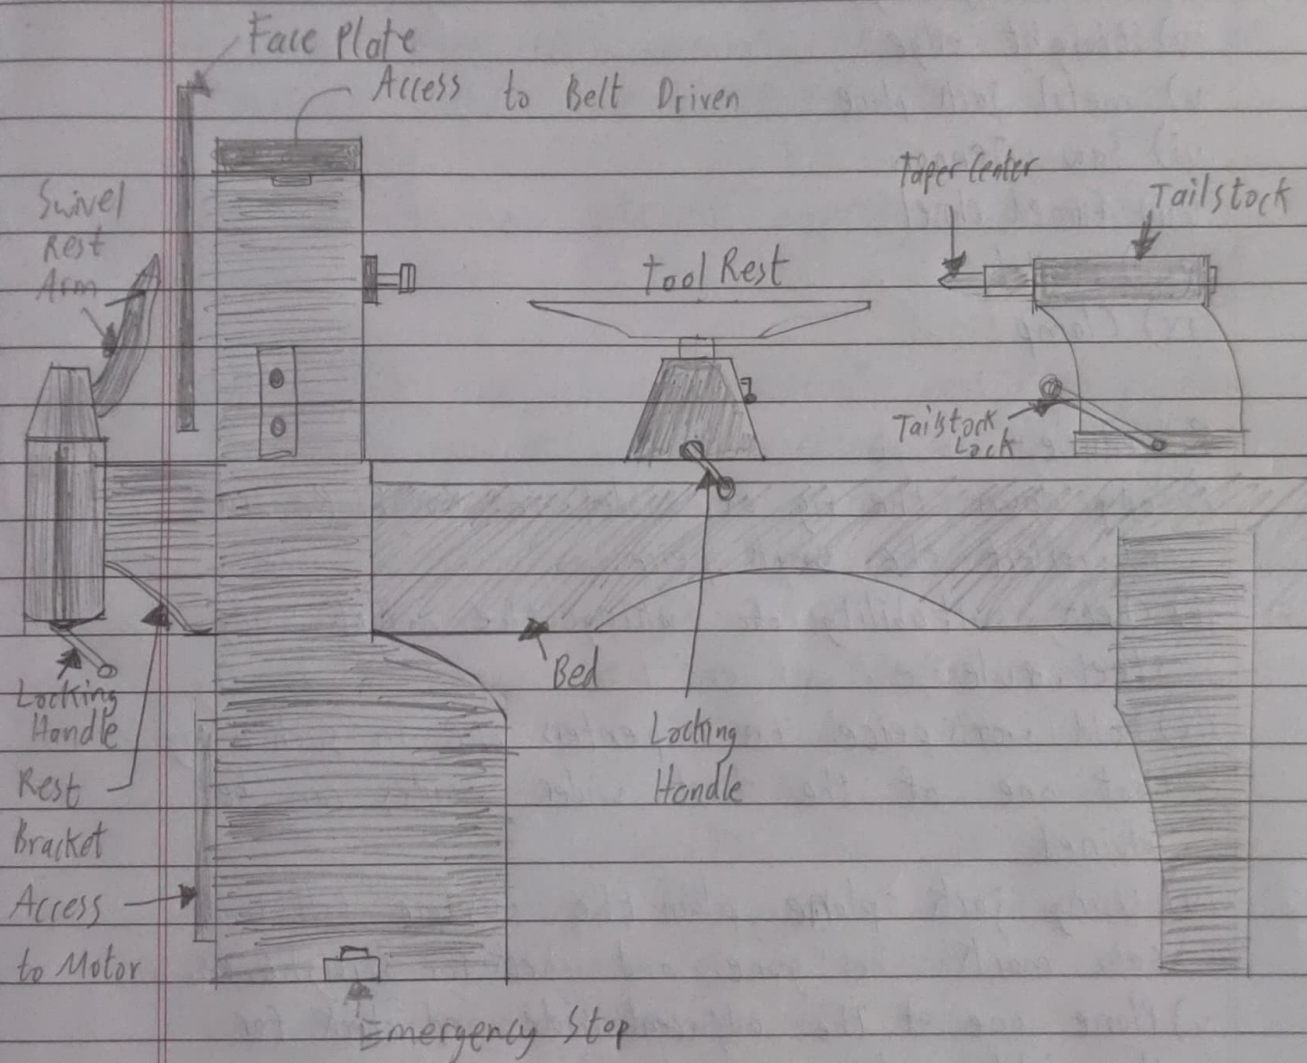 Face Plate
Access to Belt Driven
Taper Center
Tailstock
Swivel
Rest
Arm
Tool Rest
Tailstock
Lock
Bed
Locking
Handle
Locking
Handle
Rest
Bracket
Access
to Motor
Emergency Stop